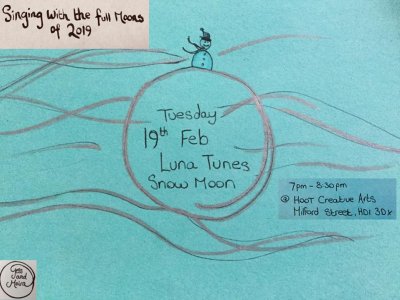 Singing with the full Moons
of 2019
Tuesday
19th Feb
Luna Tunes
Snow Moon
7pm - 8:30pm
@ Hoot Creative Arts
Milford Street, HD1 3DX
and
Moira